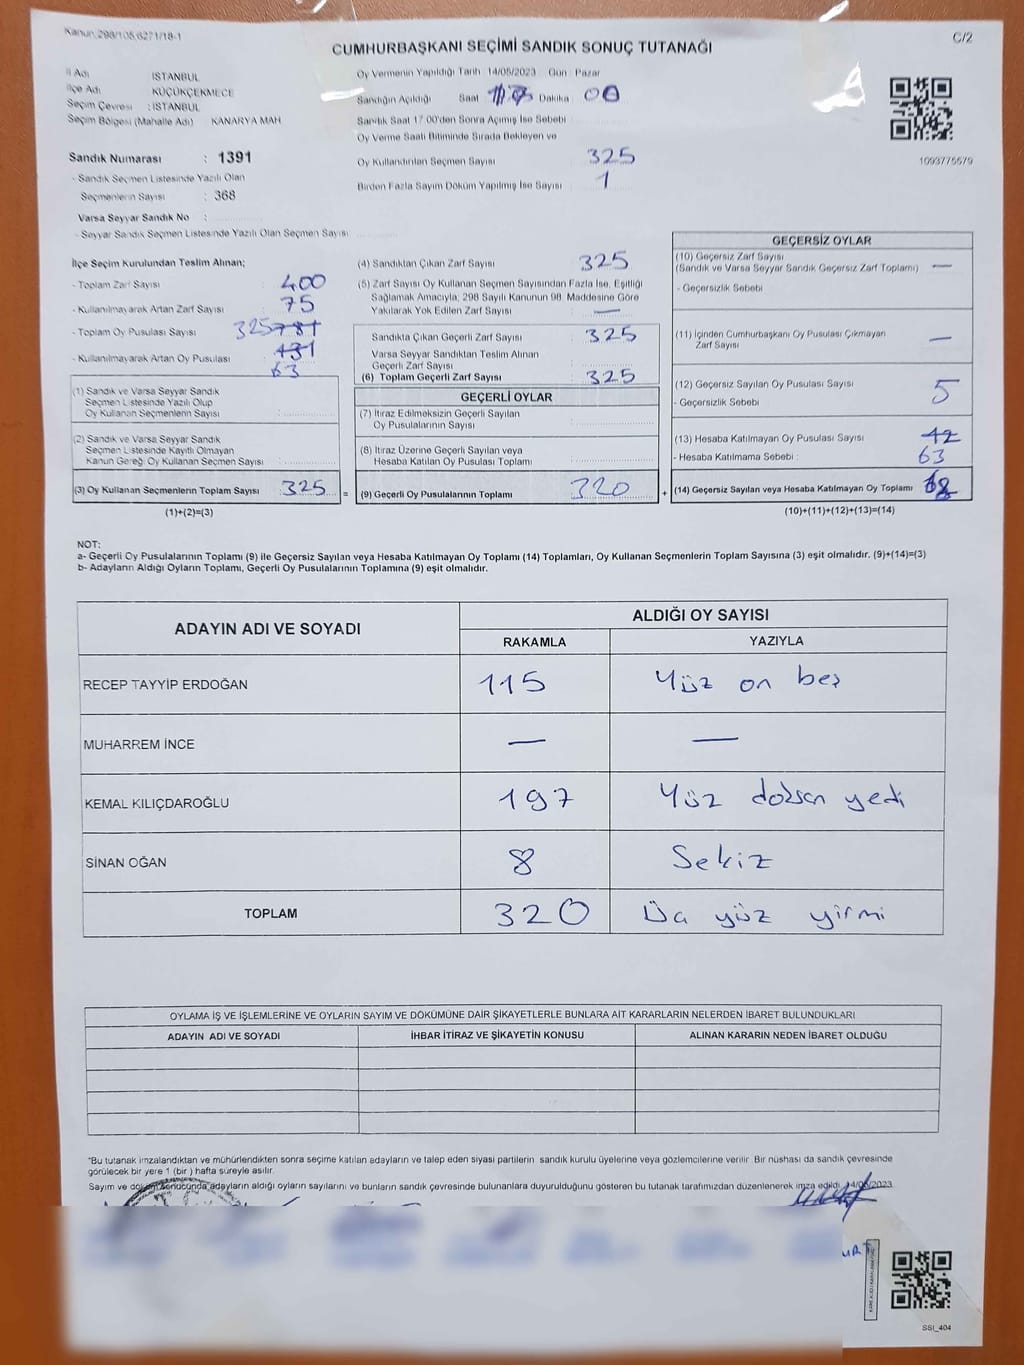 Kanun:298/105,6271/18-1
C/2
CUMHURBAŞKANI SEÇİMİ SANDIK SONUÇ TUTANAĞI
İl Adı İSTANBUL
İlçe Adı KÜÇÜKÇEKMECE
Seçim Çevresi : İSTANBUL
Seçim Bölgesi (Mahalle Adı) KANARYA MAH
Sandık Numarası : 1391
- Sandık Seçmen Listesinde Yazılı Olan
Seçmenlerin Sayısı : 368
Varsa Seyyar Sandık No :
- Seyyar Sandık Seçmen Listesinde Yazılı Olan Seçmen Sayısı:
Oy Vermenin Yapıldığı Tarih 14/05/2023 Gün : Pazar
Sandığın Açıldığı Saat Dakika 00
Sandık Saat 17:00'den Sonra Açımış İse Sebebi
Oy Verme Saati Bitiminde Sırada Bekleyen ve
Oy Kullandırılan Seçmen Sayısı 325
Birden Fazla Sayım Döküm Yapılmış İse Sayısı 1
1093775579
İlçe Seçim Kurulundan Teslim Alınan;
- Toplam Zarf Sayısı 400
- Kullanılmayarak Artan Zarf Sayısı 75
- Toplam Oy Pusulası Sayısı 325
- Kullanılmayarak Artan Oy Pusulası 431
63
(1) Sandık ve Varsa Seyyar Sandık
Seçmen Listesinde Yazılı Olup
Oy Kullanan Seçmenlerin Sayısı :
(2) Sandık ve Varsa Seyyar Sandık
Seçmen Listesinde Kayıtlı Olmayan
Kanun Gereği Oy Kullanan Seçmen Sayısı :
(3) Oy Kullanan Seçmenlerin Toplam Sayısı 325 =
(1)+(2)=(3)
(4) Sandıktan Çıkan Zarf Sayısı 325
(5) Zarf Sayısı Oy Kullanan Seçmen Sayısından Fazla İse, Eşitliği
Sağlamak Amacıyla; 298 Sayılı Kanunun 98. Maddesine Göre
Yakılarak Yok Edilen Zarf Sayısı : —
Sandıkta Çıkan Geçerli Zarf Sayısı : 325
Varsa Seyyar Sandıktan Teslim Alınan
Geçerli Zarf Sayısı
(6) Toplam Geçerli Zarf Sayısı : 325
GEÇERLİ OYLAR
(7) İtiraz Edilmeksizin Geçerli Sayılan
Oy Pusulalarının Sayısı :
(8) İtiraz Üzerine Geçerli Sayılan veya
Hesaba Katılan Oy Pusulası Toplamı
(9) Geçerli Oy Pusulalarının Toplamı 320 +
GEÇERSİZ OYLAR
(10) Geçersiz Zarf Sayısı
(Sandık ve Varsa Seyyar Sandık Geçersiz Zarf Toplamı) —
- Geçersizlik Sebebi
(11) İçinden Cumhurbaşkanı Oy Pusulası Çıkmayan
Zarf Sayısı —
(12) Geçersiz Sayılan Oy Pusulası Sayısı 5
- Geçersizlik Sebebi
(13) Hesaba Katılmayan Oy Pusulası Sayısı 42
- Hesaba Katılmama Sebebi : 63
(14) Geçersiz Sayılan veya Hesaba Katılmayan Oy Toplamı
(10)+(11)+(12)+(13)=(14)
NOT:
a- Geçerli Oy Pusulalarının Toplamı (9) ile Geçersiz Sayılan veya Hesaba Katılmayan Oy Toplamı (14) Toplamları, Oy Kullanan Seçmenlerin Toplam Sayısına (3) eşit olmalıdır. (9)+(14)=(3)
b- Adayların Aldığı Oyların Toplamı, Geçerli Oy Pusulalarının Toplamına (9) eşit olmalıdır.
ADAYIN ADI VE SOYADI
ALDIĞI OY SAYISI
RAKAMLA YAZIYLA
RECEP TAYYİP ERDOĞAN 115 Yüz on beş
MUHARREM İNCE — —
KEMAL KILIÇDAROĞLU 197 Yüz doksan yedi
SİNAN OĞAN 8 Sekiz
TOPLAM 320 yüz yirmi
OYLAMA İŞ VE İŞLEMLERİNE VE OYLARIN SAYIM VE DÖKÜMÜNE DAİR ŞİKAYETLERLE BUNLARA AİT KARARLARIN NELERDEN İBARET BULUNDUKLARI
ADAYIN ADI VE SOYADI İHBAR İTİRAZ VE ŞİKAYETİN KONUSU ALINAN KARARIN NEDEN İBARET OLDUĞU
*Bu tutanak imzalandıktan ve mühürlendikten sonra seçime katılan adayların ve talep eden siyasi partilerin sandık kurulu üyelerine veya gözlemcilerine verilir. Bir nüshası da sandık çevresinde
görülecek bir yere 1 (bir ) hafta süreyle asılır.
Sayım ve döküm sonucunda adayların aldığı oyların sayılarını ve bunların sandık çevresinde bulunanlara duyurulduğunu gösteren bu tutanak tarafımızdan düzenlenerek imza edildi. 14/05/2023
SSI_404